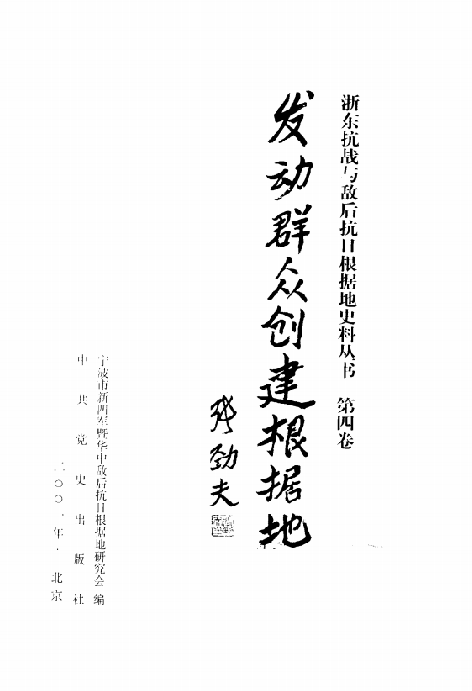 浙东抗战与敌后抗日根据地史料丛书 第四卷
发动群众创建根据地
张劲夫
宁波市新四军暨华中敌后抗日根据地研究会 编
中共党史出版社
二〇〇一年·北京